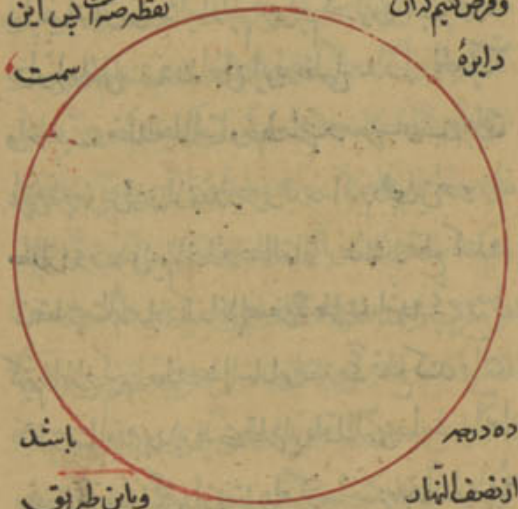 وفرض کنیم که آن نقطه صراست پس این
دایرهٔ سمت
ده درجه باشد
از نصف النهار وباین طریق